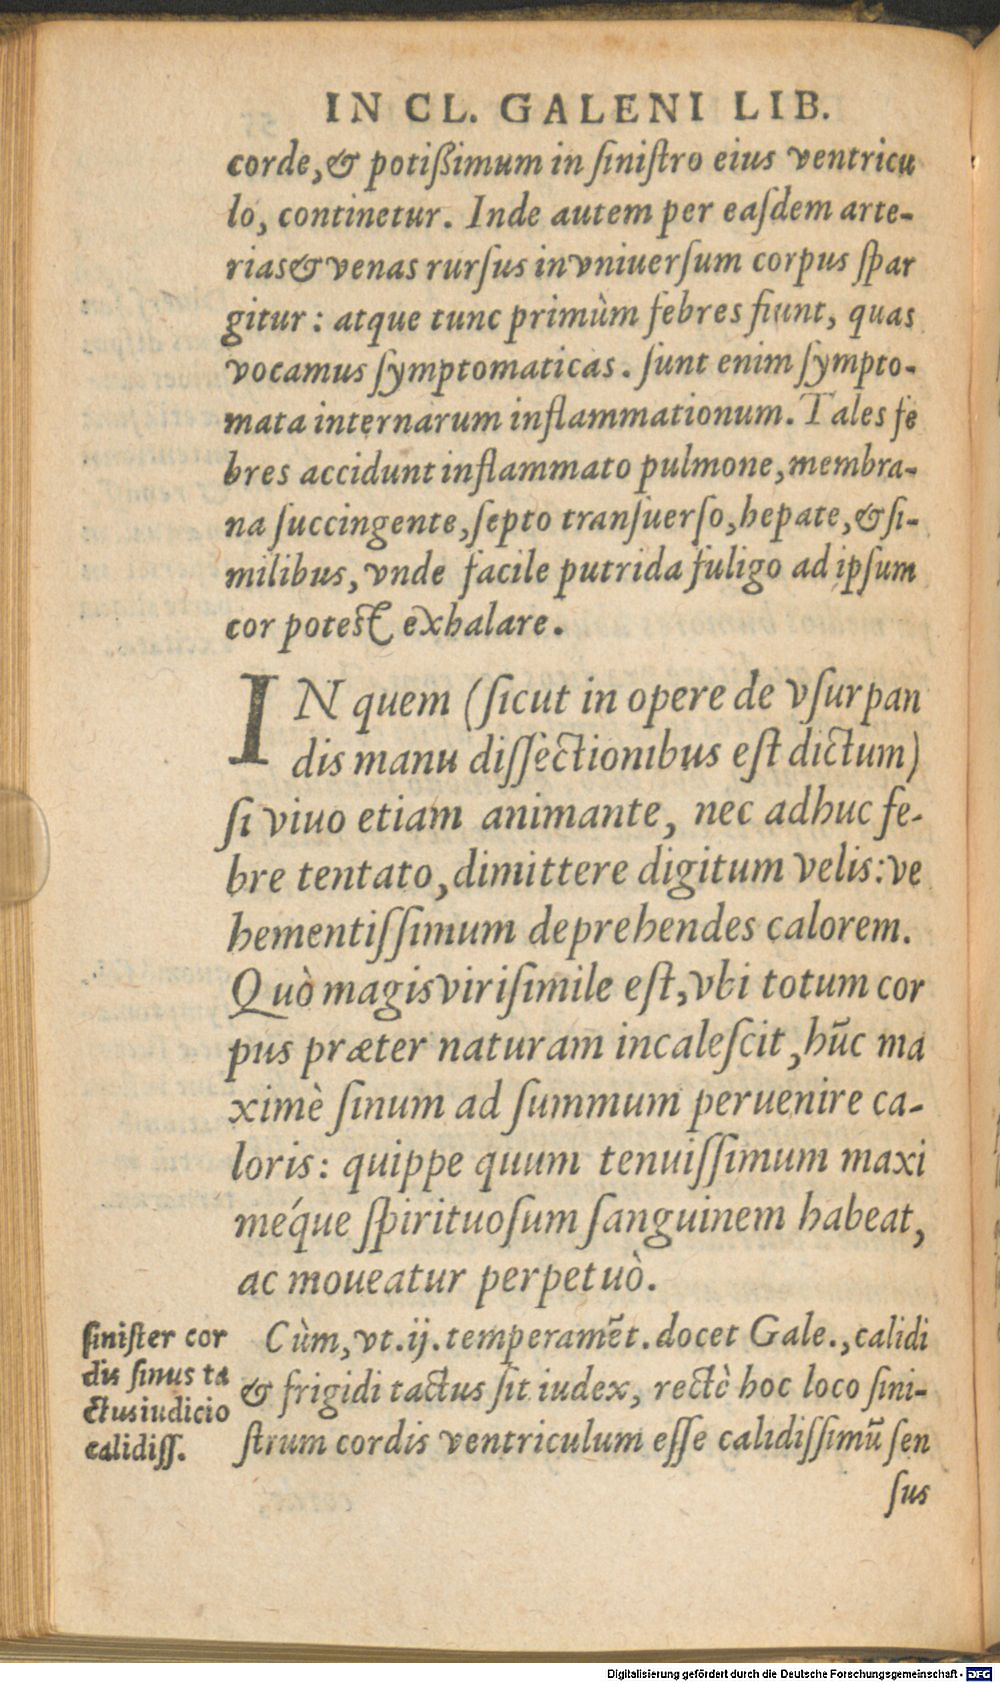 IN CL. GALENI LIB.
corde, & potißimum in ſiniſtro eius ventricu
lo, continetur. Inde autem per eaſdem arte-
rias & venas rurſus in vniuerſum corpus ſpar
gitur: atque tunc primùm febres fiunt, quas
vocamus ſymptomaticas. ſunt enim ſympto-
mata internarum inflammationum. Tales fe
bres accidunt inflammato pulmone, membra-
na ſuccingente, ſepto tranſuerſo, hepate, & ſi-
milibus, vnde facile putrida fuligo ad ipſum
cor potest exhalare.
IN quem (ſicut in opere de vſurpan
dis manu diſſèctionibus eſt dictum)
ſi viuo etiam animante, nec adhuc fe-
bre tentato, dimittere digitum velis: ve
hementiſſimum deprehendes calorem.
Quò magis viriſimile eſt, vbi totum cor
pus præter naturam incaleſcit, hūc ma
ximè ſinum ad ſummum peruenire ca-
loris: quippe quum tenuiſſimum maxi
méque ſpirituoſum ſanguinem habeat,
ac moueatur perpetuò.
Cùm, vt. ij. temperamēt. docet Gale., calidi
& frigidi tactus ſit iudex, rectè hoc loco ſini-
ſtrum cordis ventriculum eſſe calidiſſimū ſen
ſus
ſiniſter cor
dis ſinus ta
ctus iudicio
calidiſſ.
Digitalisierung gefördert durch die Deutsche Forschungsgemeinschaft - DFG